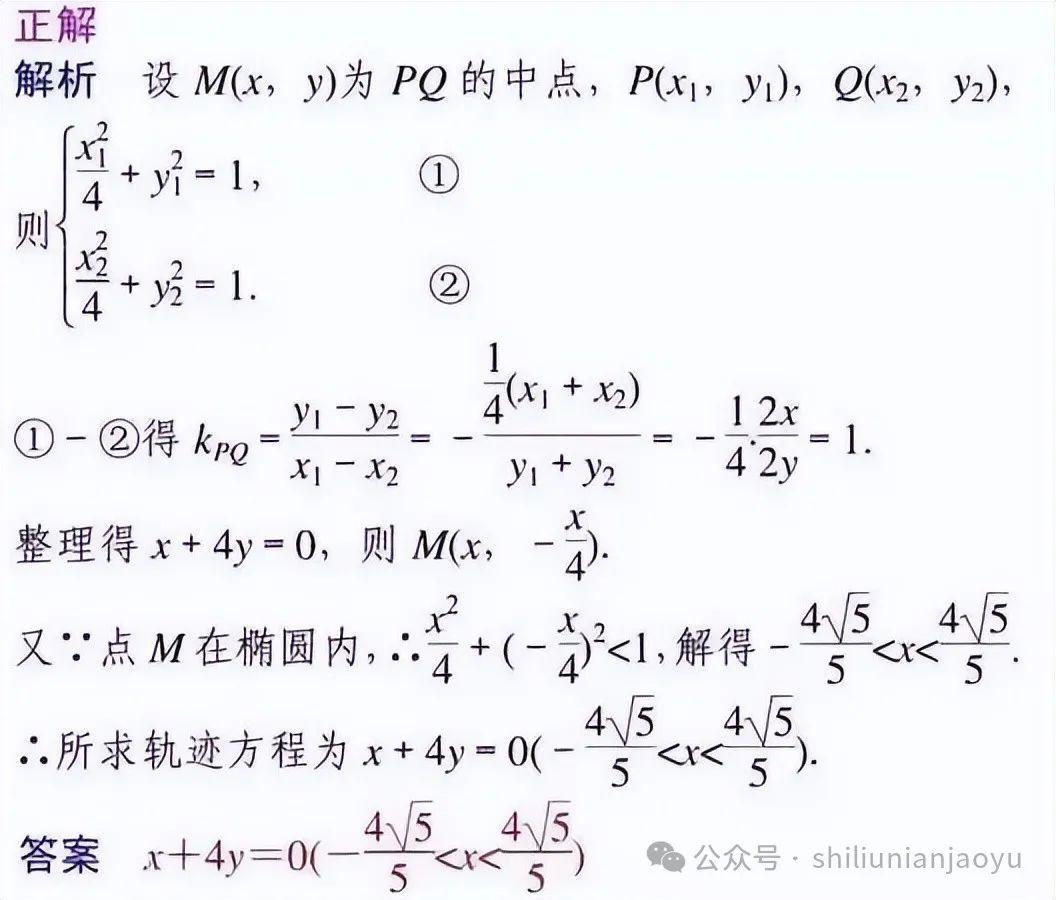 正解
解析 设 M(x, y)为 PQ 的中点, P(x₁, y₁), Q(x₂, y₂),
则 { x₁²/4 + y₁² = 1, ①
x₂²/4 + y₂² = 1. ②
① - ②得 k_PQ = (y₁ - y₂)/(x₁ - x₂) = - (1/4(x₁ + x₂))/(y₁ + y₂) = - 1/4·2x/2y = 1.
整理得 x + 4y = 0, 则 M(x, - x/4).
又∵点 M 在椭圆内,∴x²/4 + (- x/4)²<1,解得 - 4√5/5<x<4√5/5.
∴所求轨迹方程为 x + 4y = 0(- 4√5/5<x<4√5/5).
答案 x+4y=0(-4√5/5<x<4√5/5)
公众号 · shiliunianjaoyu